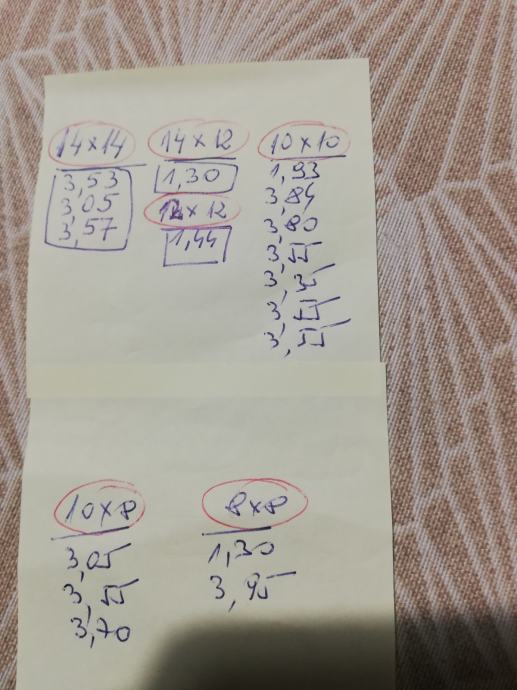 14x14
3,53
3,05
3,57
14x12
1,30
12x12
1,44
10x10
1,93
3,84
3,80
3,55
3,55
3,55
10x8
3,05
3,55
3,70
8x8
1,30
3,95